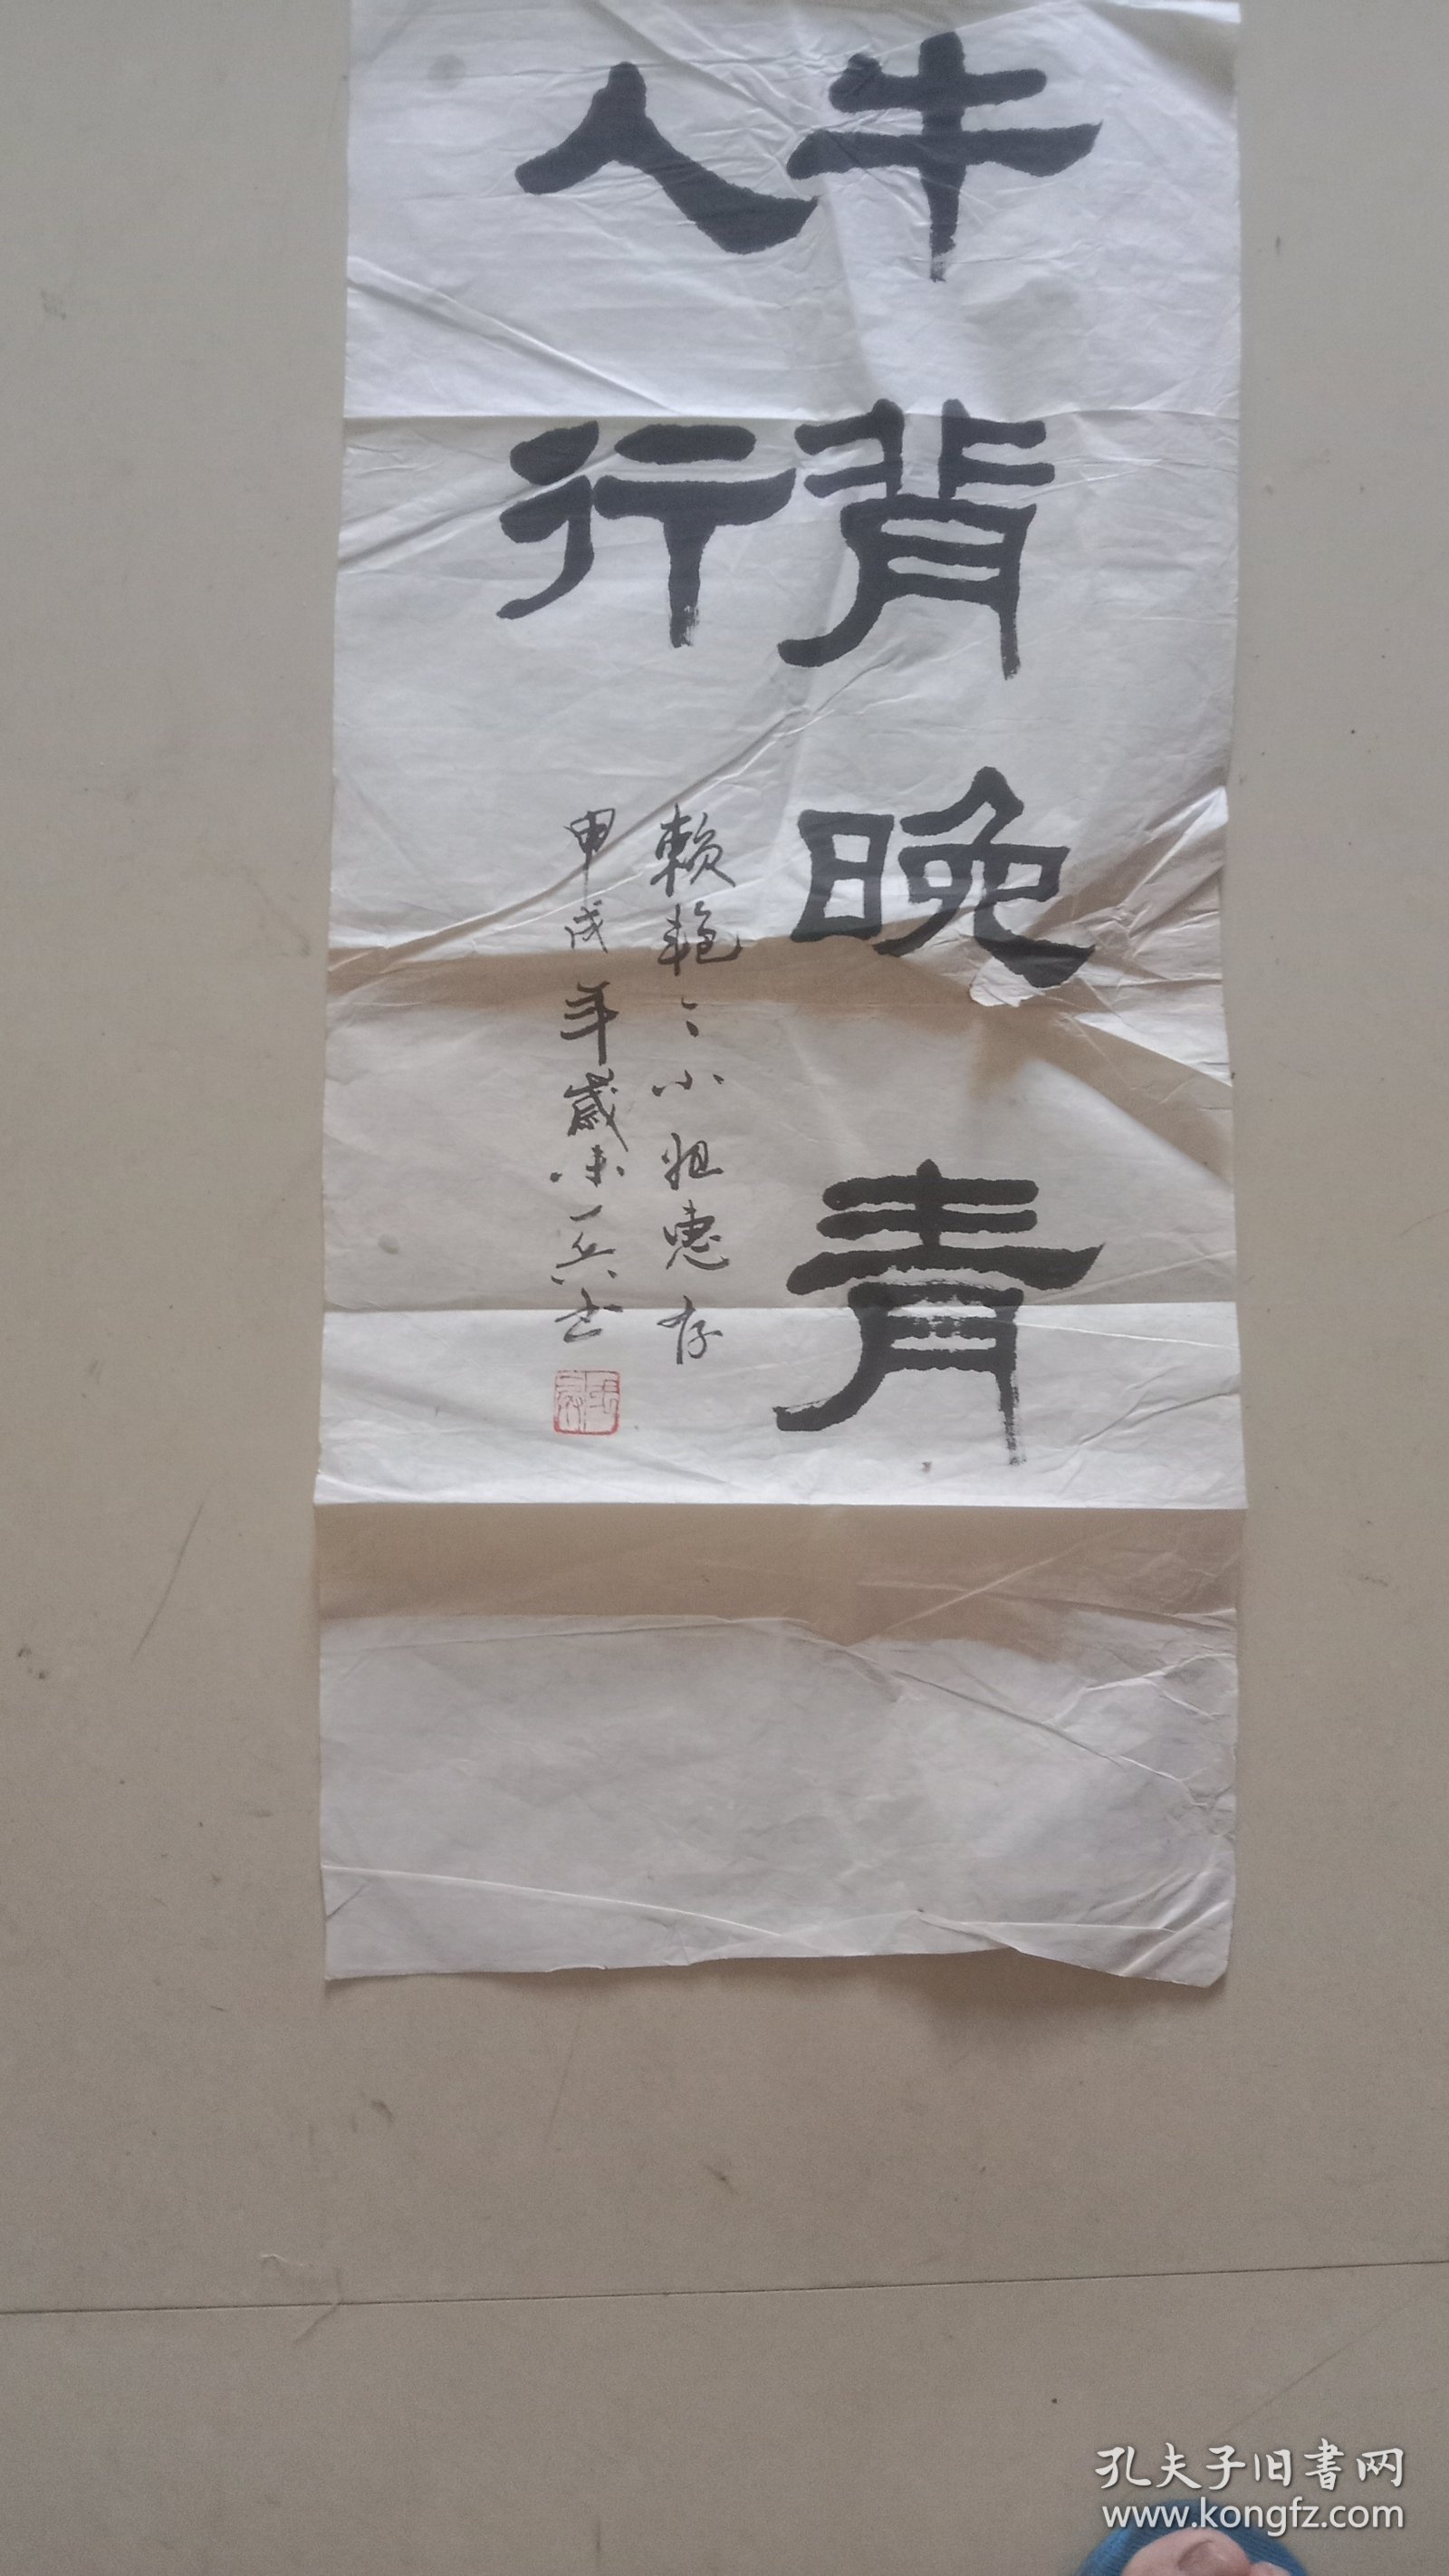 牛背晚青
人行
赖艳艳小姐惠存
甲戌年岁末一兵书
孔夫子旧书网
www.kongfz.com